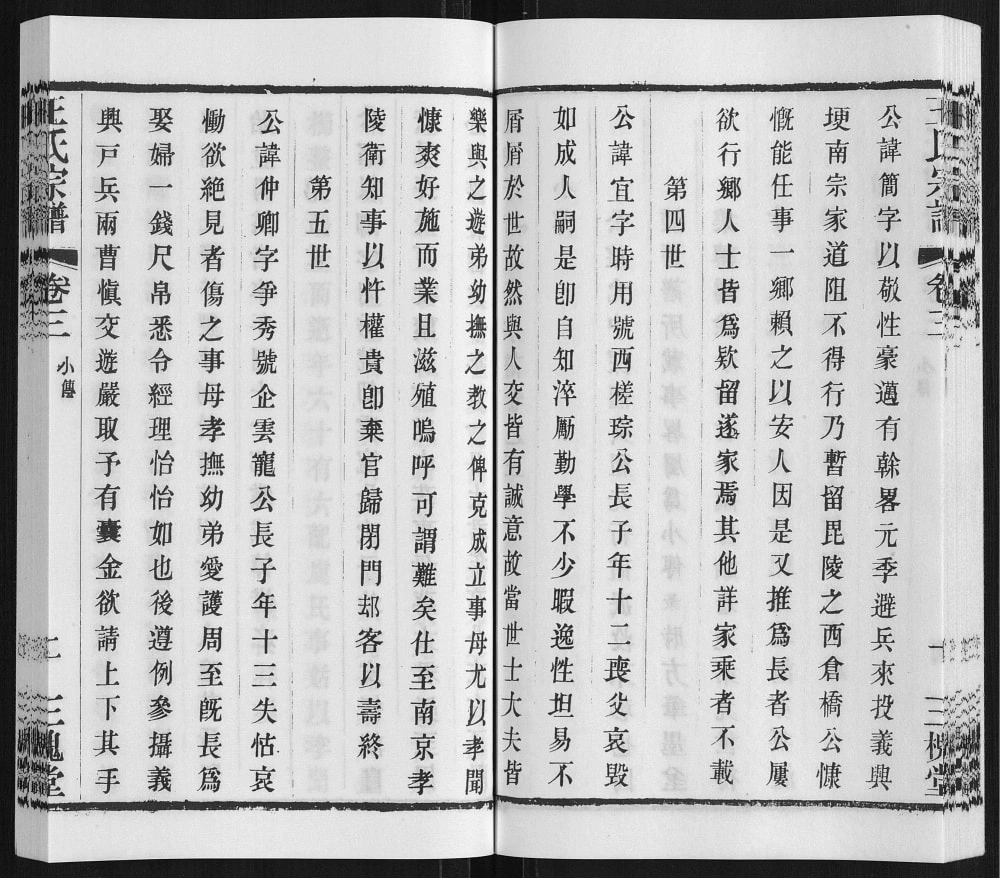 公諱簡字以敬性豪邁有榦畧元季避兵來投義興
埂南宗家道阻不得行乃暫留毘陵之西倉橋公慷
慨能任事一鄉賴之以安人因是又推爲長者公屢
欲行鄉人士皆爲欵留遂家焉其他詳家乘者不載
第四世
公諱宜字時用號西槎琮公長子年十二喪父哀毀
如成人嗣是卽自知淬厲勤學不少暇逸性坦易不
屑屑於世故然與人交皆有誠意故當世士大夫皆
樂與之遊弟幼撫之教之俾克成立事母尤以孝聞
慷爽好施而業且滋殖嗚呼可謂難矣仕至南京孝
陵衛知事以忤權貴卽棄官歸閉門却客以壽終
第五世
公諱仲卿字爭秀號企雲寵公長子年十三失怙哀
慟欲絶見者傷之事母孝撫幼弟愛護周至旣長爲
娶婦一錢尺帛悉令經理怡怡如也後遵例參攝義
興戸兵兩曹愼交遊嚴取予有囊金欲請上下其手
王氏宗譜
卷三
小傳
二
三槐堂